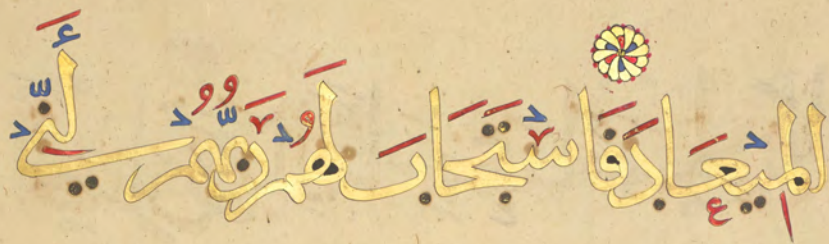 الْمِيعَادَ فَاسْتَجَابَ لَهُمْ رَبُّهُمْ أَنِّي